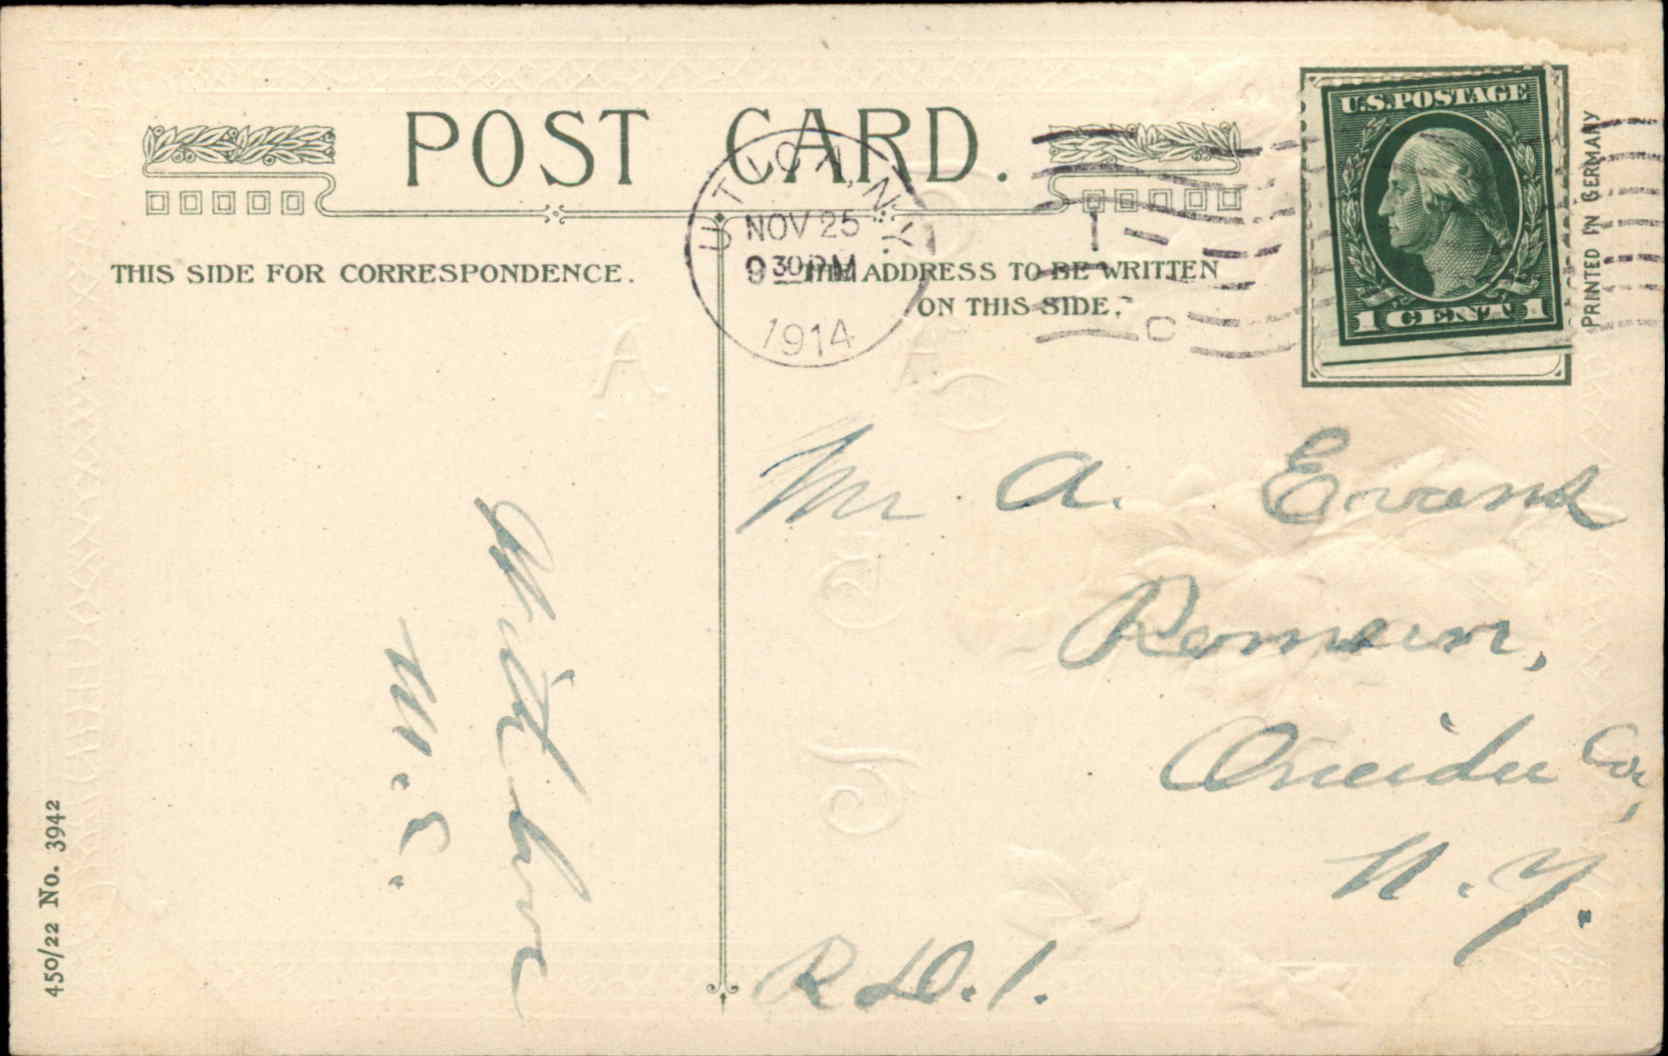 POST CARD.
THIS SIDE FOR CORRESPONDENCE.
THE ADDRESS TO BE WRITTEN
ON THIS SIDE.
UTICA, N.Y.
NOV 25
9 30 PM
1914
U.S. POSTAGE
1 CENT 1
PRINTED IN GERMANY
Mr. A. Evans
Remsen,
Oneida Co,
N. Y.
R.D. 1.
With love
M. E.
450/22 No. 3942